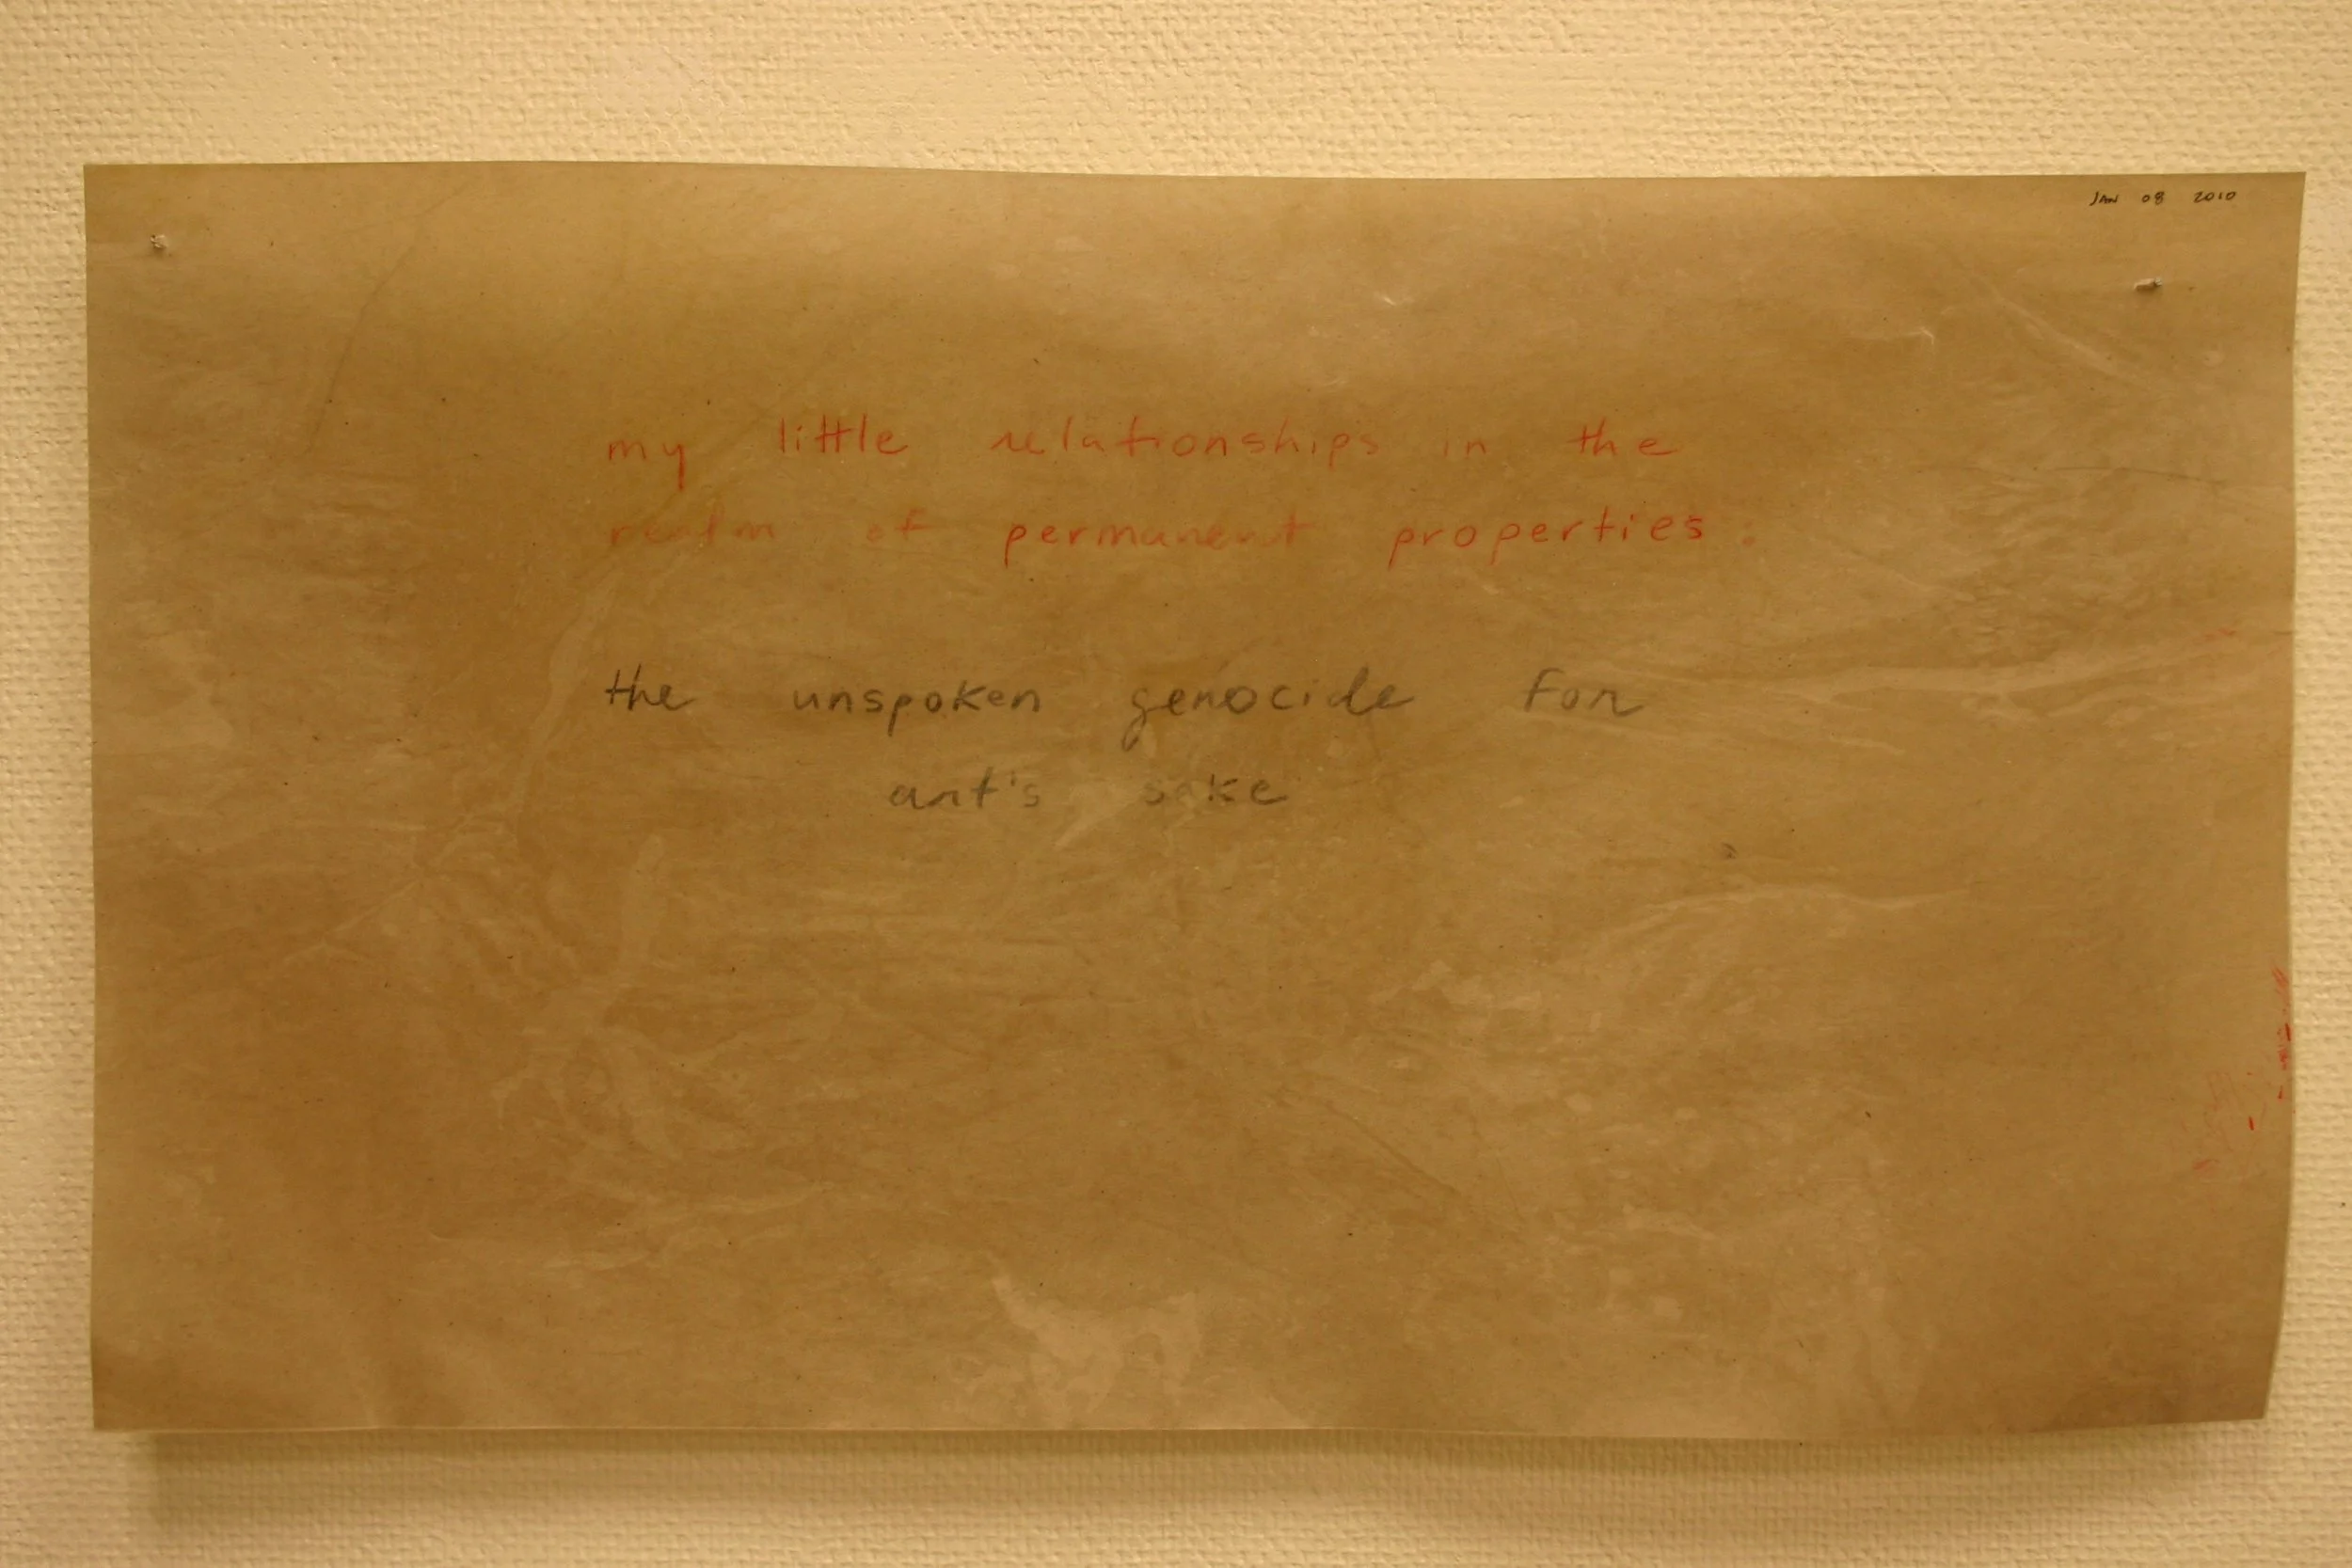 JAN 08 2010
my little relationships in the
realm of permanent properties:
the unspoken genocide for
art's sake